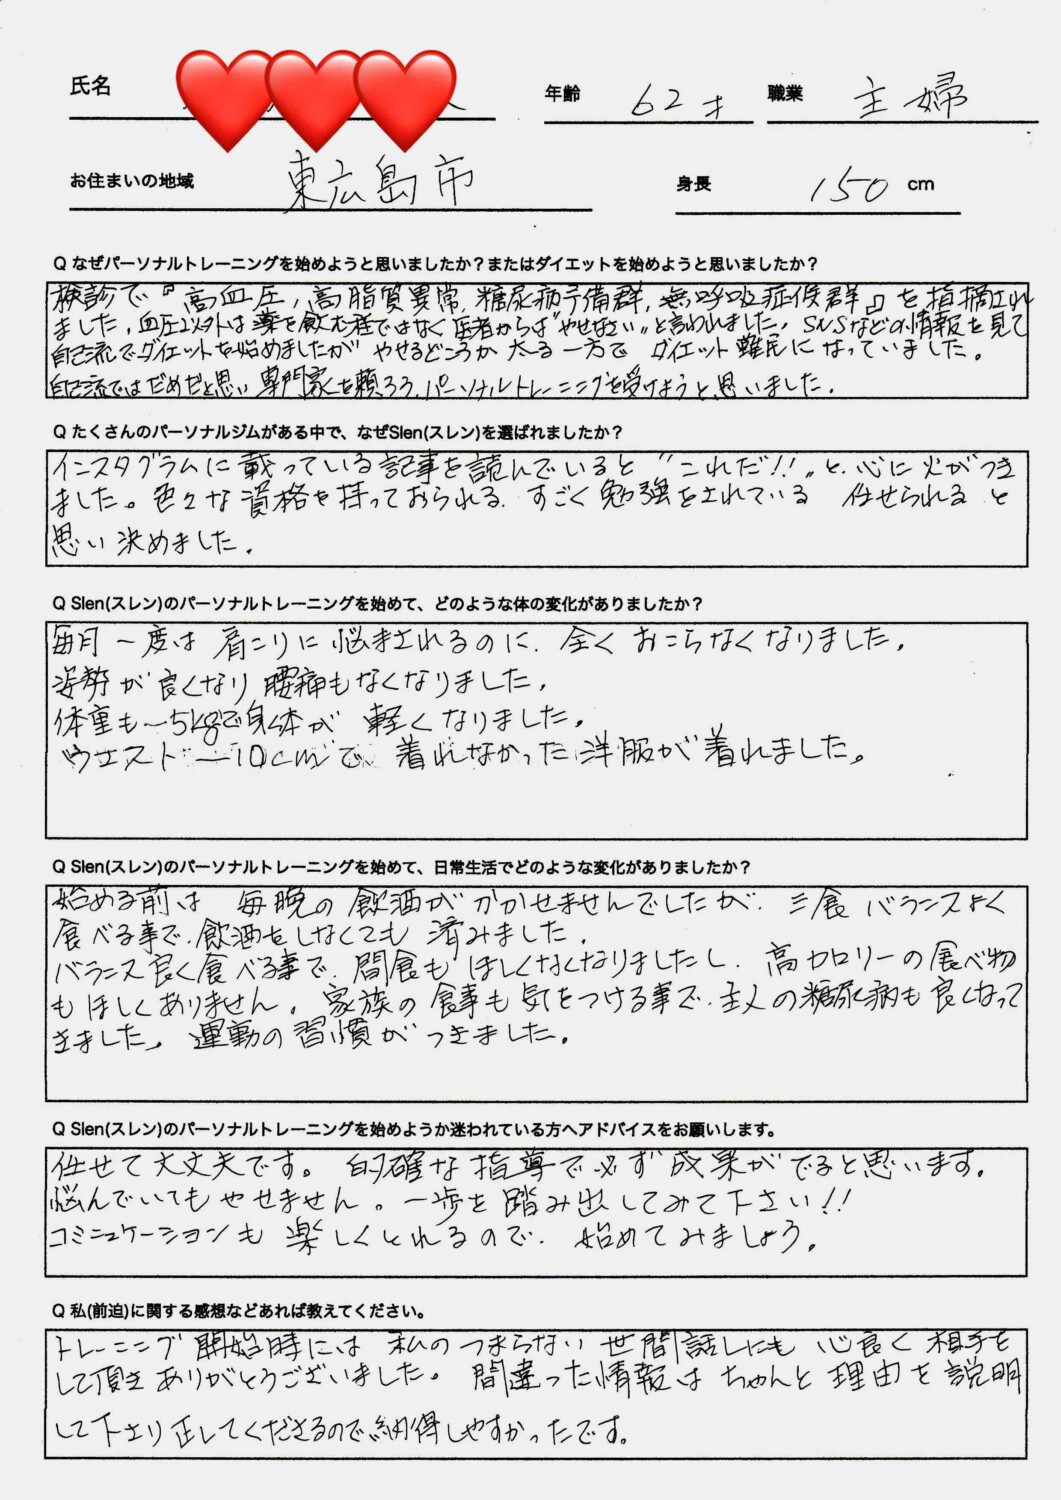 氏名
年齢 62才 職業 主婦
お住まいの地域 東広島市 身長 150 cm
Q なぜパーソナルトレーニングを始めようと思いましたか？またはダイエットを始めようと思いましたか？
検診で『高血圧, 高脂質異常, 糖尿病予備群, 無呼吸症候群』を指摘され
ました, 血圧以外は薬を飲む程ではなく医者からは“やせなさい”と言われました, SNSなどの情報を見て
自己流でダイエットを始めましたが やせるどころか太る一方で ダイエット難民になっていました。
自己流ではだめだと思い 専門家を頼ろう, パーソナルトレーニングを受けようと思いました.
Q たくさんのパーソナルジムがある中で、なぜSlen(スレン)を選ばれましたか？
インスタグラムに載っている記事を読んでいると “これだ!!”と 心に火がつき
ました。色々な資格を持っておられる. すごく勉強をされている 任せられると
思い決めました.
Q Slen(スレン)のパーソナルトレーニングを始めて、どのような体の変化がありましたか？
毎月一度は肩こりに悩まされるのに. 全くおこらなくなりました.
姿勢が良くなり腰痛もなくなりました.
体重も-5kgで身体が 軽くなりました。
ウエスト-10cmで、着れなかった洋服が着れました。
Q Slen(スレン)のパーソナルトレーニングを始めて、日常生活でどのような変化がありましたか？
始める前は 毎晩の飲酒がかかせませんでしたが. 三食 バランスよく
食べる事で.飲酒をしなくても 済みました.
バランス良く食べる事で. 間食もほしくなくなりましたし. 高カロリーの食べ物
もほしくありません。家族の食事も気をつける事で.主人の糖尿病も良くなって
きました。運動の習慣がつきました。
Q Slen(スレン)のパーソナルトレーニングを始めようか迷われている方へアドバイスをお願いします。
任せて大丈夫です。的確な指導で必ず成果がでると思います.
悩んでいてもやせません。一歩を踏み出してみて下さい!!
コミニュケーションも楽しくとれるので. 始めてみましょう。
Q 私(前迫)に関する感想などあれば教えてください。
トレーニング開始時には 私のつまらない世間話しにも 心良く相手を
して頂きありがとうございました。間違った情報はちゃんと理由を説明
して下さり正してくださるので納得しやすかったです。